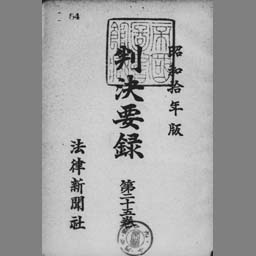 54
昭和拾年版
判決要録
第二十五巻
法律新聞社